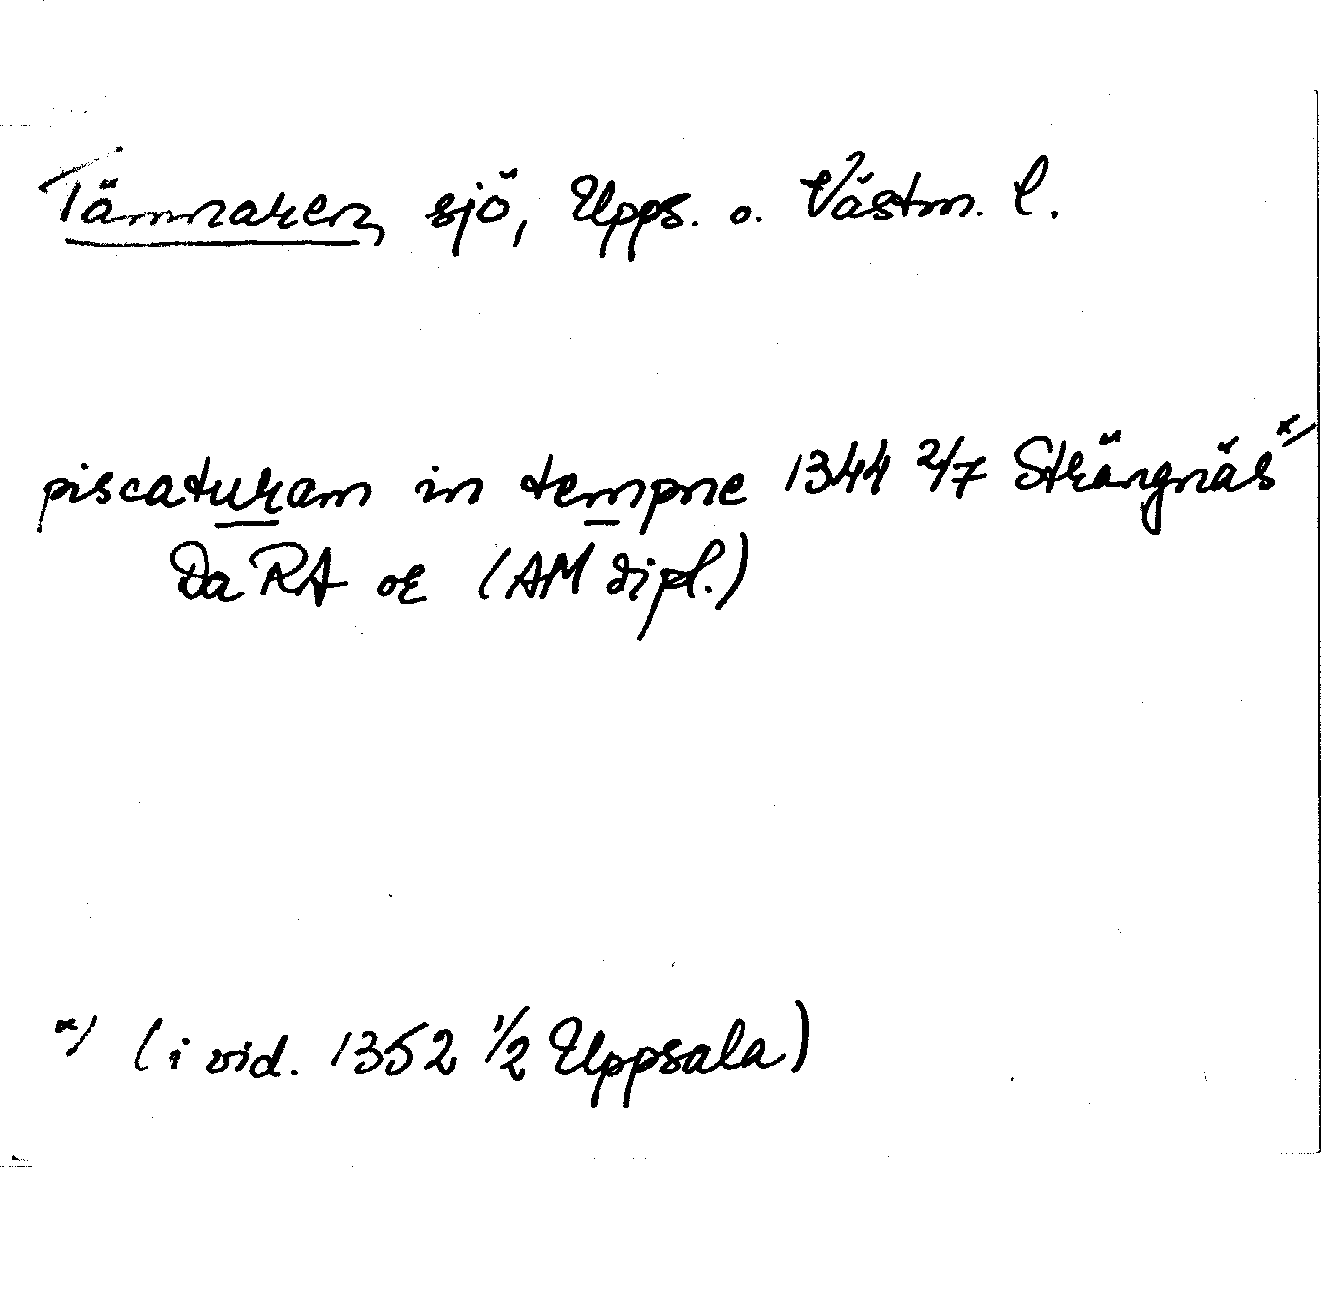 Tämnaren, sjö, Upps. o. Västm. l.
piscaturam in tempne 1344 2/7 Strängnäs x/
Da RA or (AM dipl.)
x/ (i vid. 1352 1/2 Uppsala)